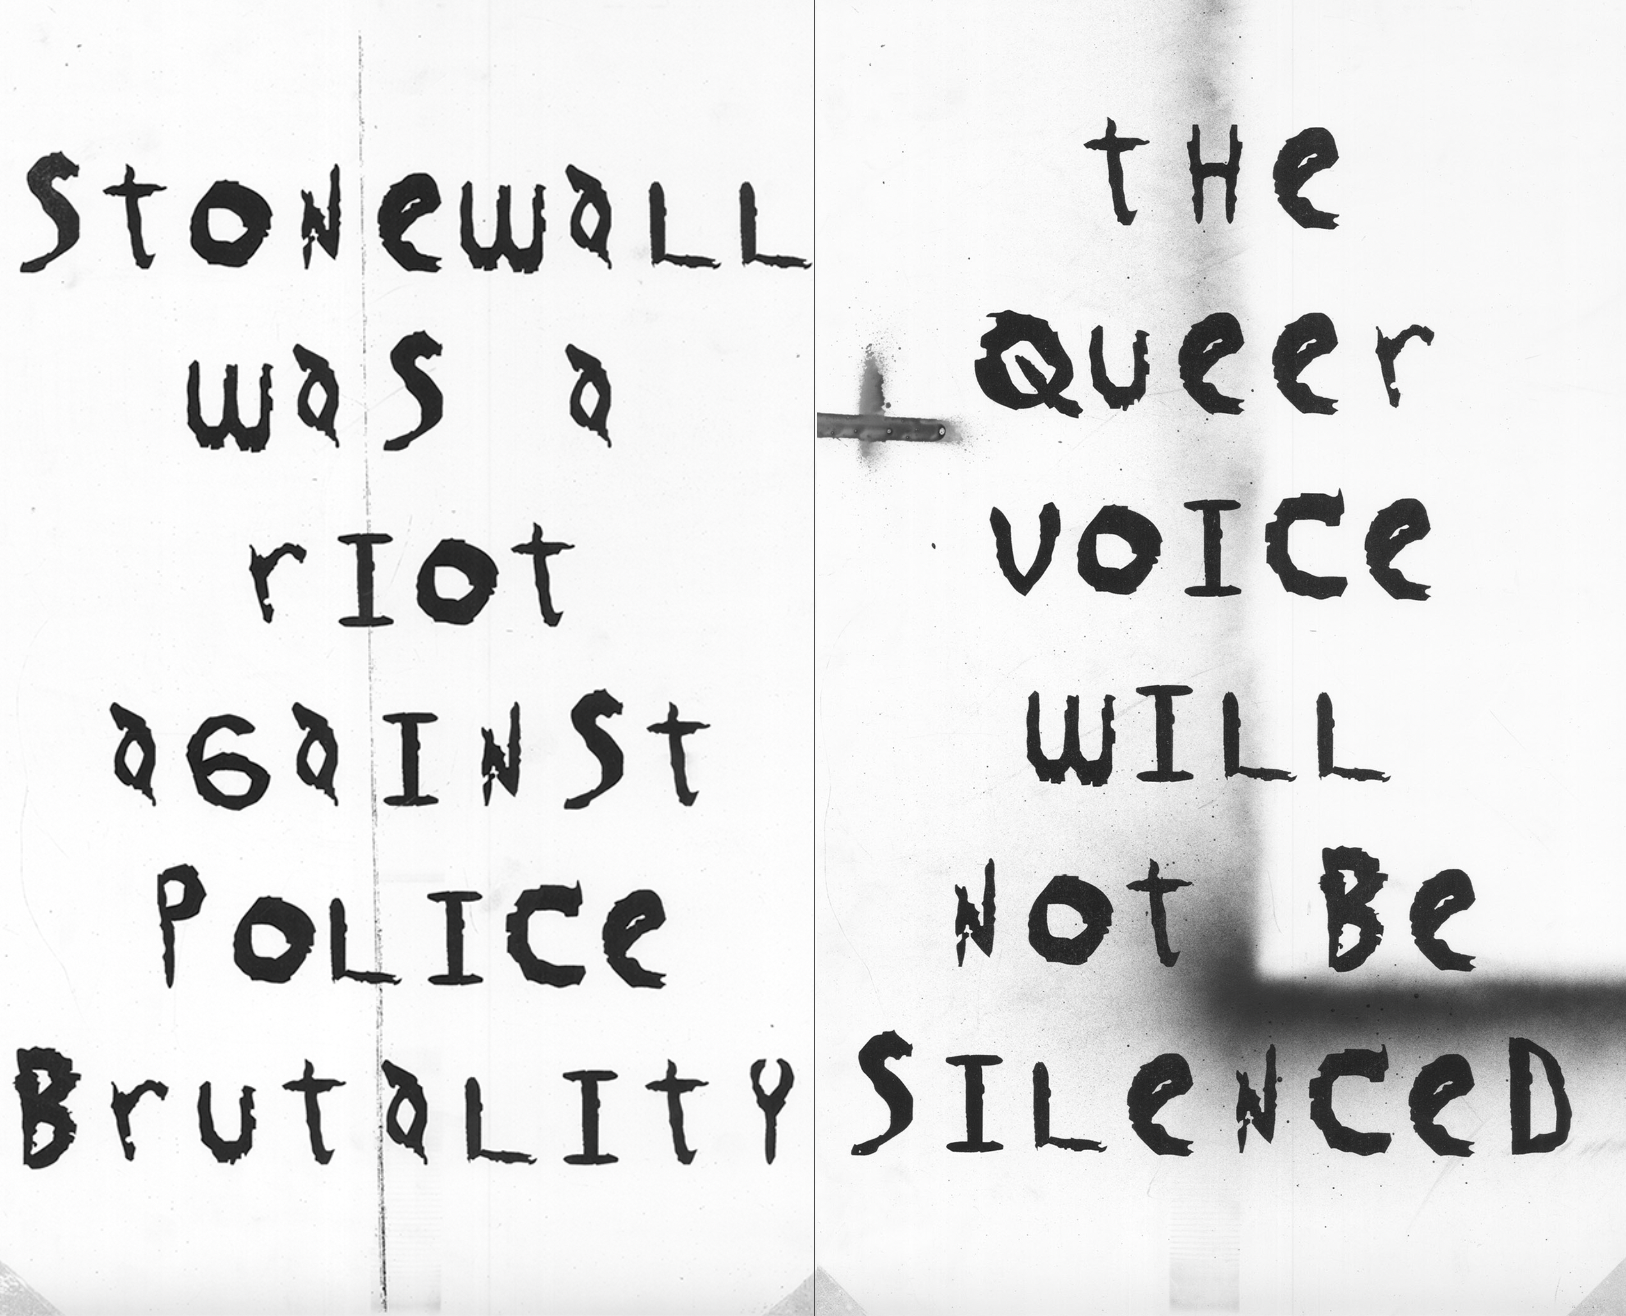 StoNewaLL
was a
rIot
aGaINSt
PoLICe
BrutaLItY
tHe
Queer
voICe
wILL
Not Be
SILeNCeD